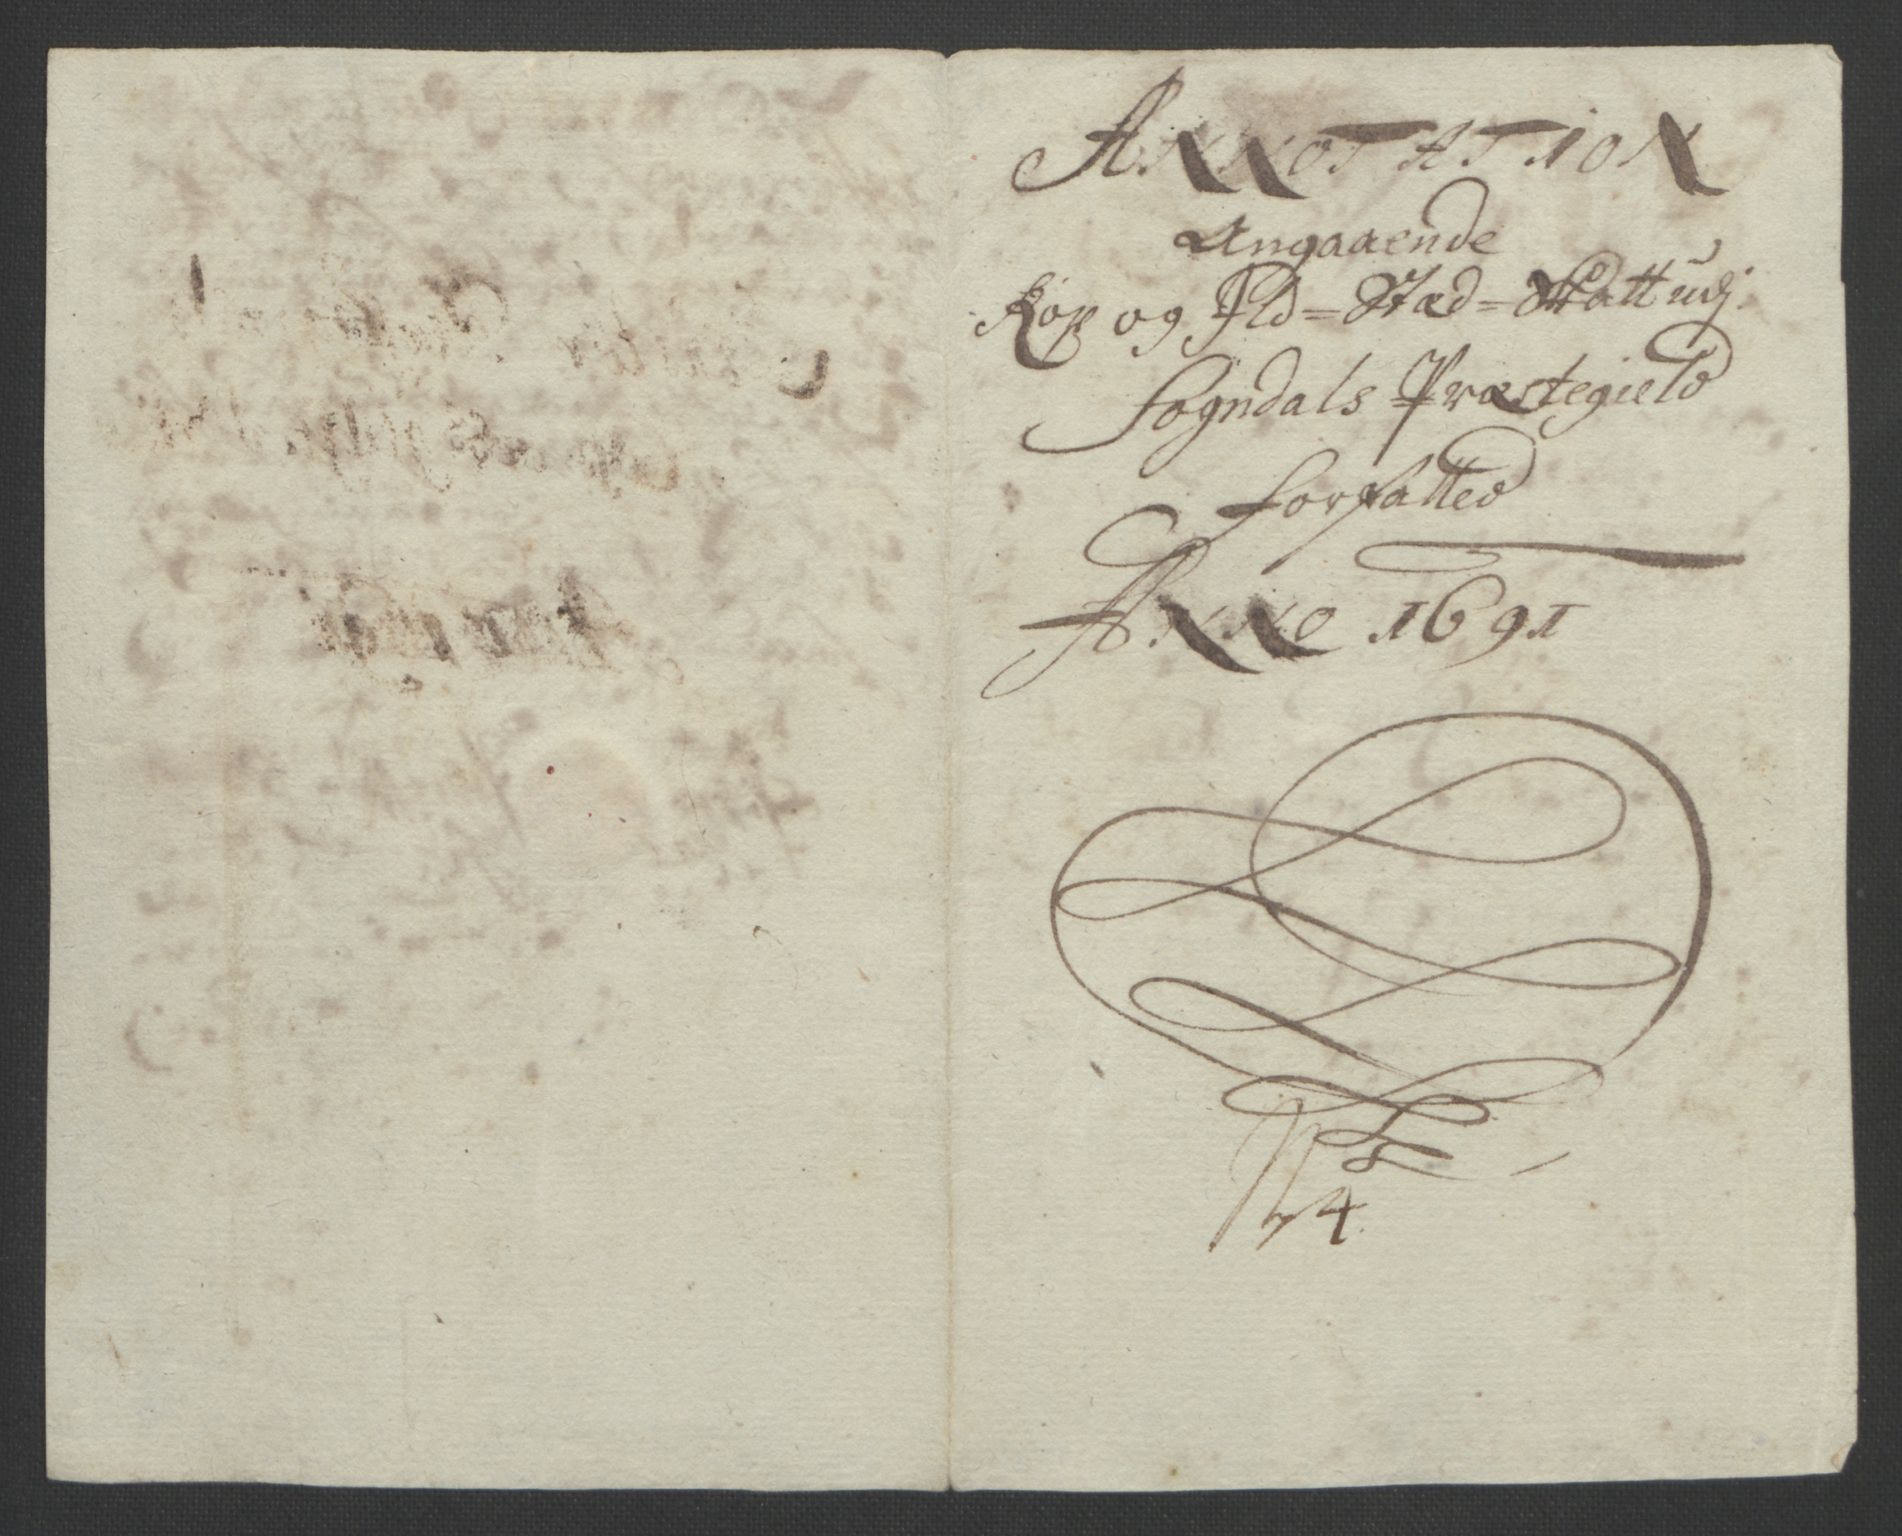 ANNOTATION
Angaaende
Kop og Ild=Stæd=Skatt udj
Sogndals Præstegield
forfatted
ANNO 1691
No 4.